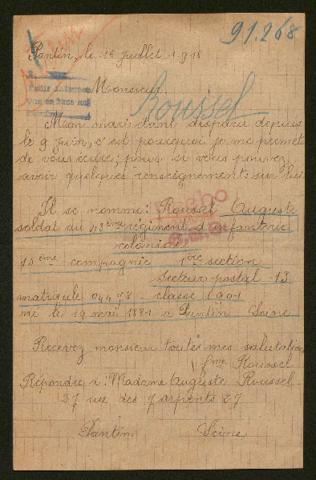 91.268
Pantin, le 18 juillet 1918
Monsieur,
Roussel
Mon mari étant disparu depuis
le 9 juin, c'est pourquoi je me permet
de vous écrire, pour si vous pouvez
avoir quelques renseignements sur lui
Il se nomme: Roussel Auguste
soldat du 43ème régiment d'infanterie
coloniale
15ème compagnie 1ère section
Secteur postal - 13
matricule 04478 - classe 1901
né le 19 mai 1881 à Pantin Seine
Recevez monsieur toutes mes salutation
Mme Roussel
Répondre à: Madame Auguste Roussel
37 rue des
Pantin Seine